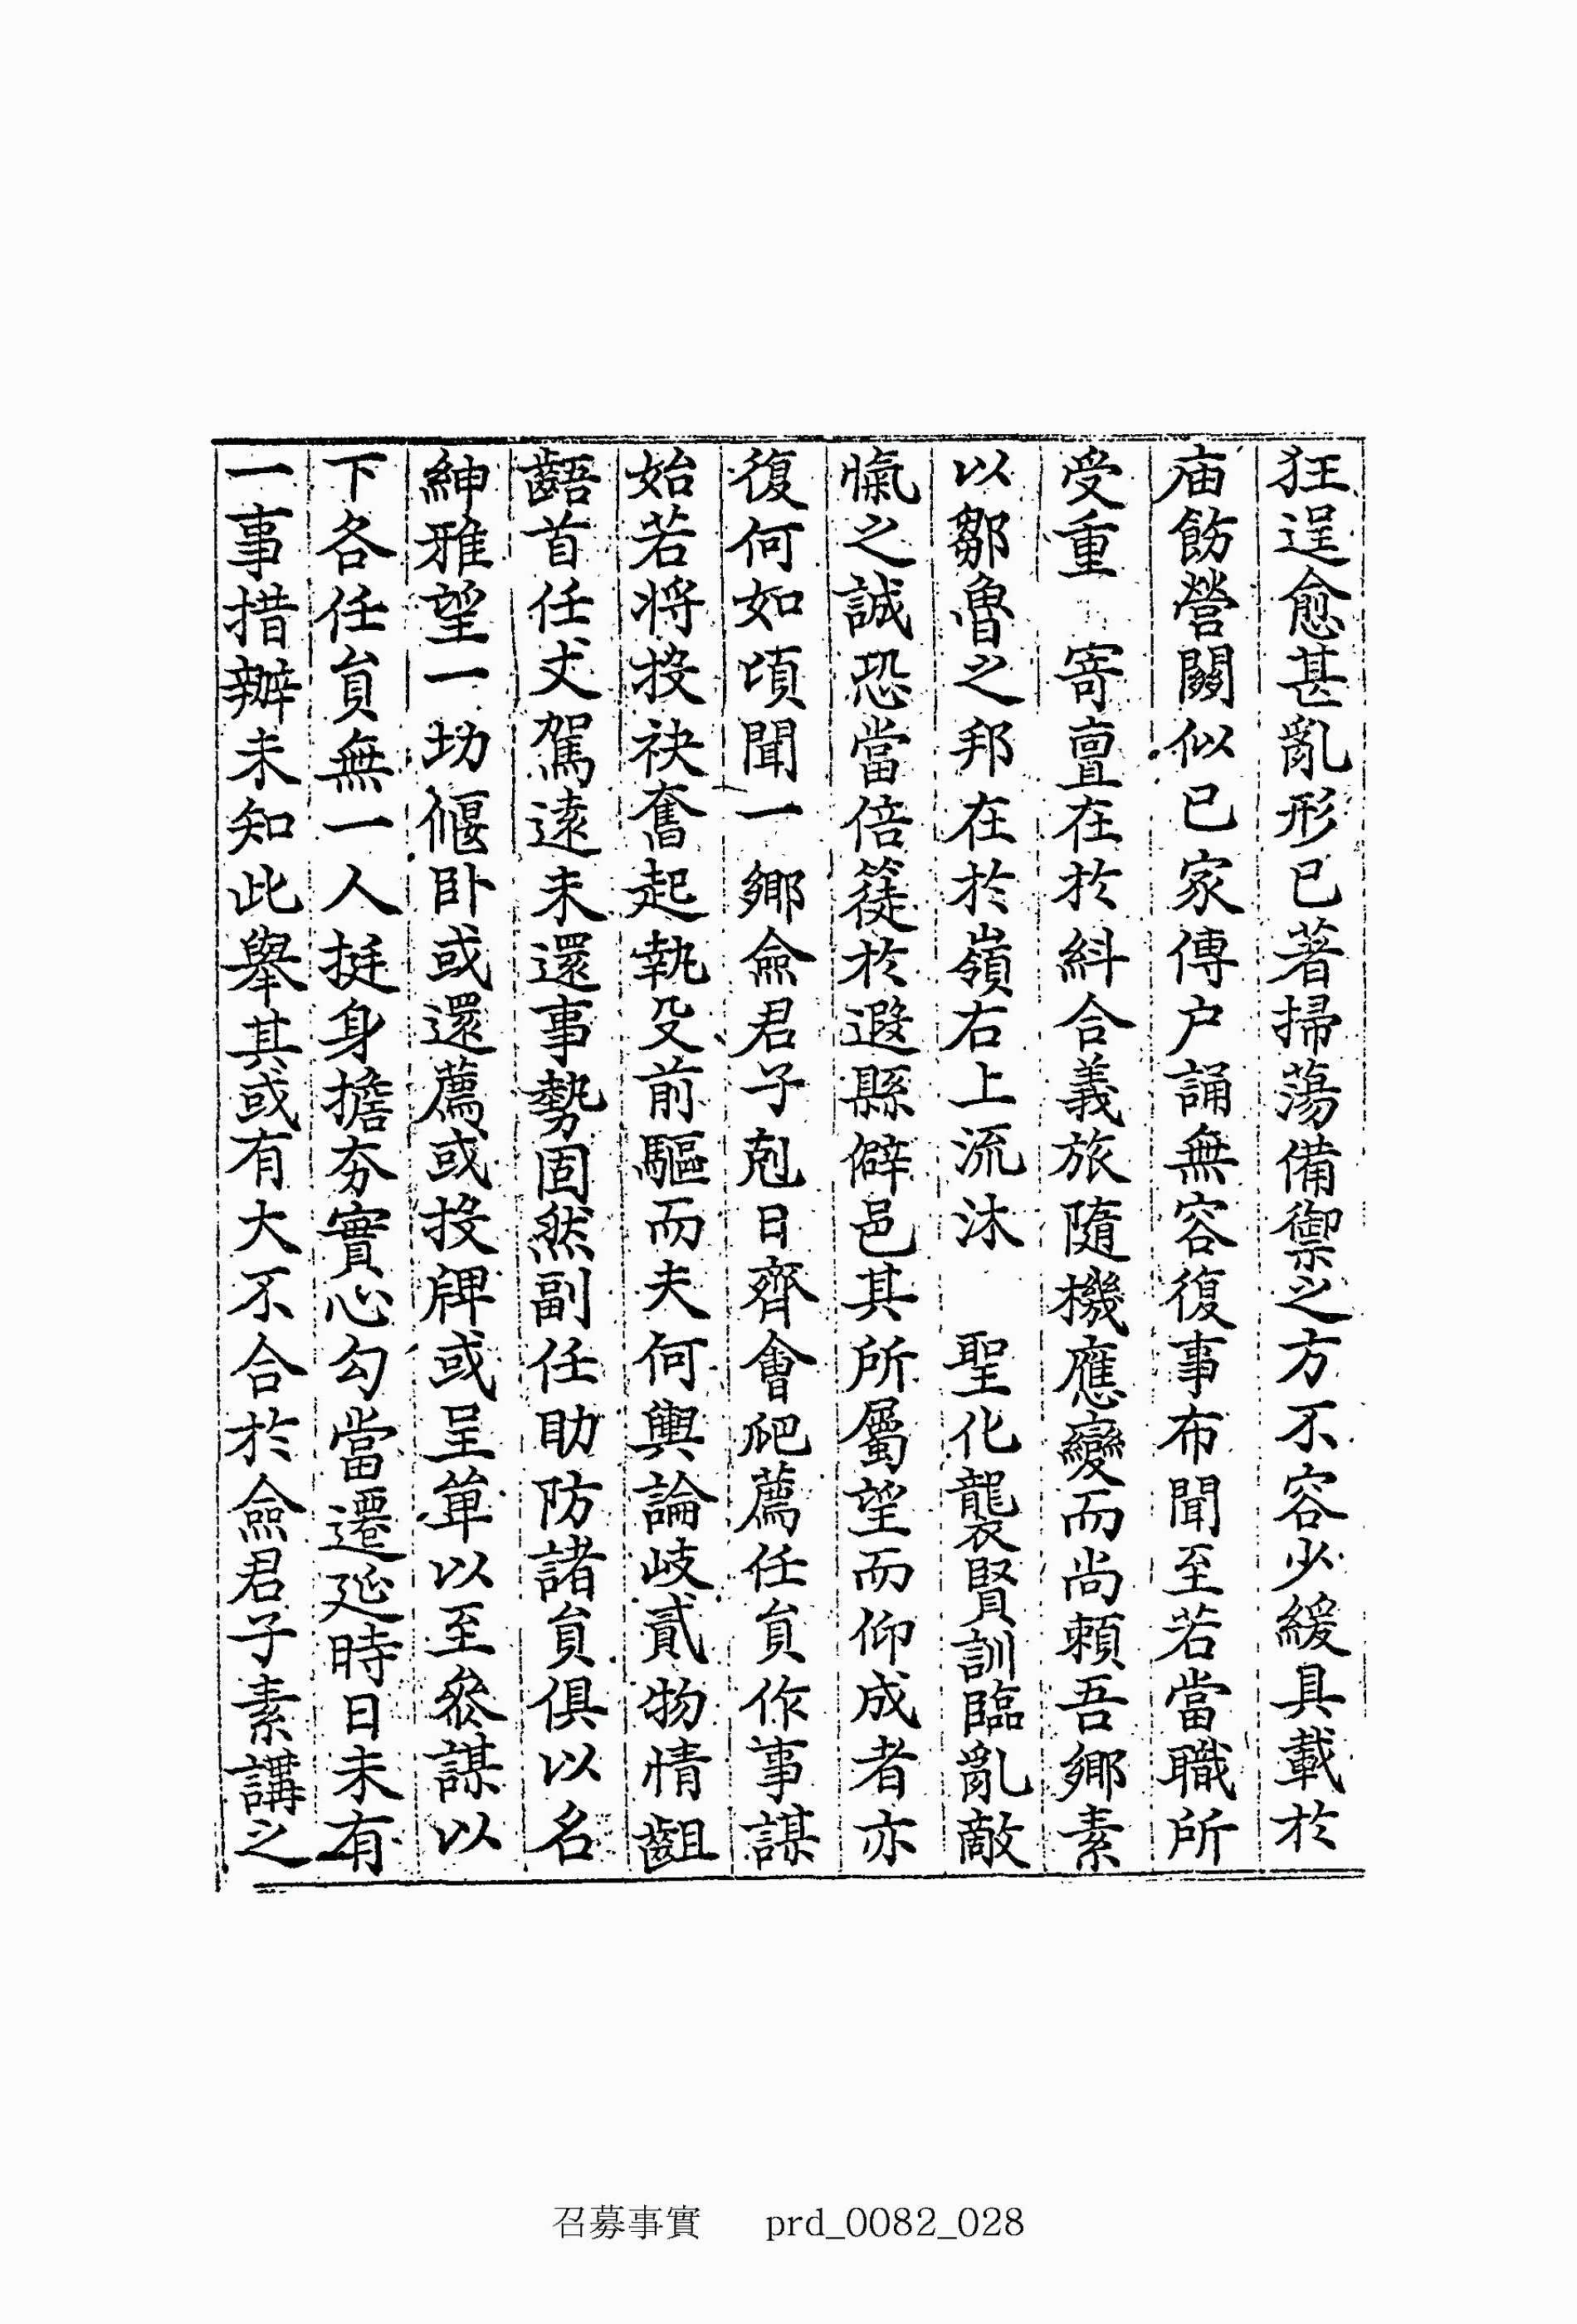 狂逞愈甚亂形已著掃蕩備禦之方不容少緩具載於
庙飭營關似已家傳户誦無容復事布聞至若當職所
受重　寄亶在於糾合義旅隨機應變而尚賴吾鄉素
以鄒魯之邦在於嶺右上流沐　聖化襲賢訓臨亂敵
愾之誠恐當倍簁於遐縣僻邑其所屬望而仰成者亦
復何如頃聞一鄉僉君子剋日齊會爬薦任負作事謀
始若將投袂奮起執殳前驅而夫何輿論岐貳物情齟
齬首任丈駕遠未還事勢固然副任助防諸負俱以名
紳雅望一切偃卧或還薦或投牌或呈單以至叅謀以
下各任負無一人挺身擔夯實心勾當遷延時日未有
一事措辦未知此舉其或有大不合於僉君子素講之
召募事實　prd_0082_028